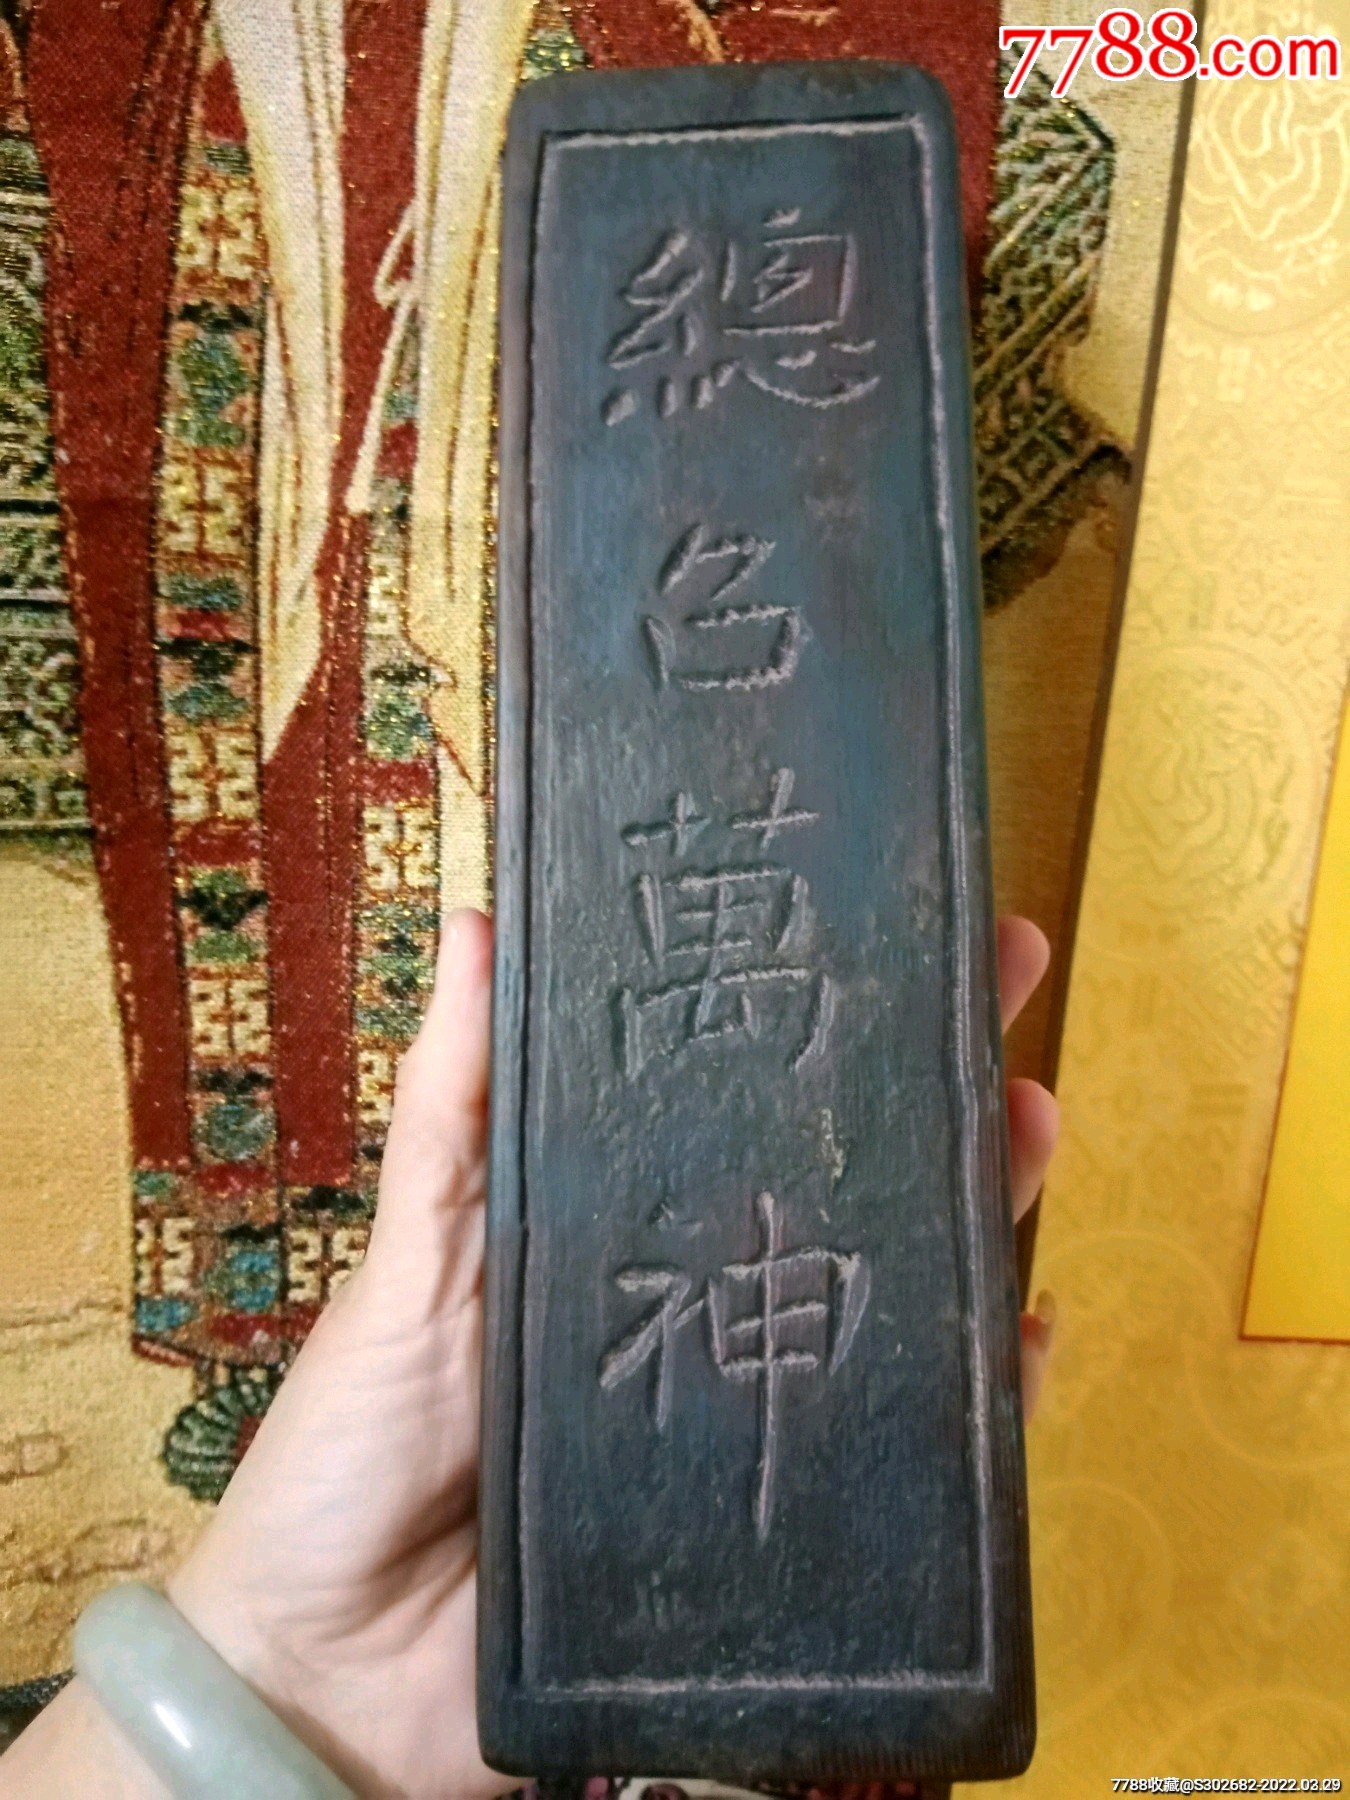 7788.com
總召萬神
7788收藏@S302682-2022.03.29